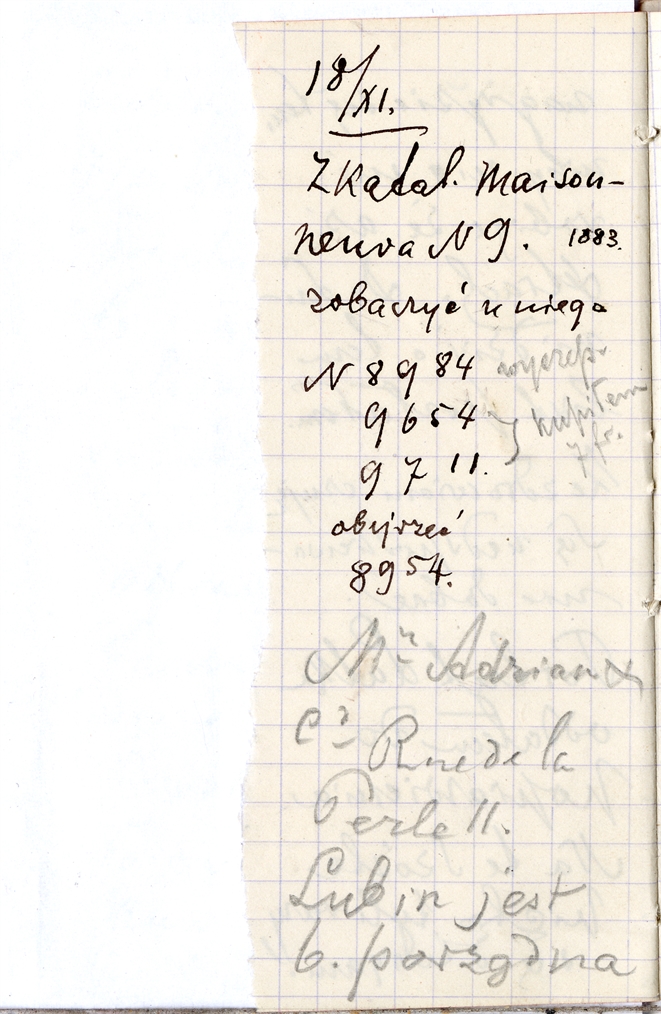 18/XI.
Z Katal. Maison-
neuva N 9. 1883.
zobaczyć u niego
N 8984 wyczerp.
9654 } kupiłem
9711. 7 fr.
obejrzeć
8954.
Mn Adrian &
Cie Rue de la
Perle 11.
Lubin jest
b. porządna